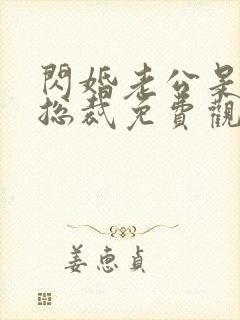 閃婚老公呆
總裁免費觀
姜惠貞